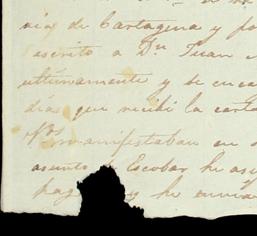 de Cartagena y po
escrito a Dn Juan
ultimamente y se encu
dias que recibi la carta
manifestaban en
asunto Escobar he
pag y he envia